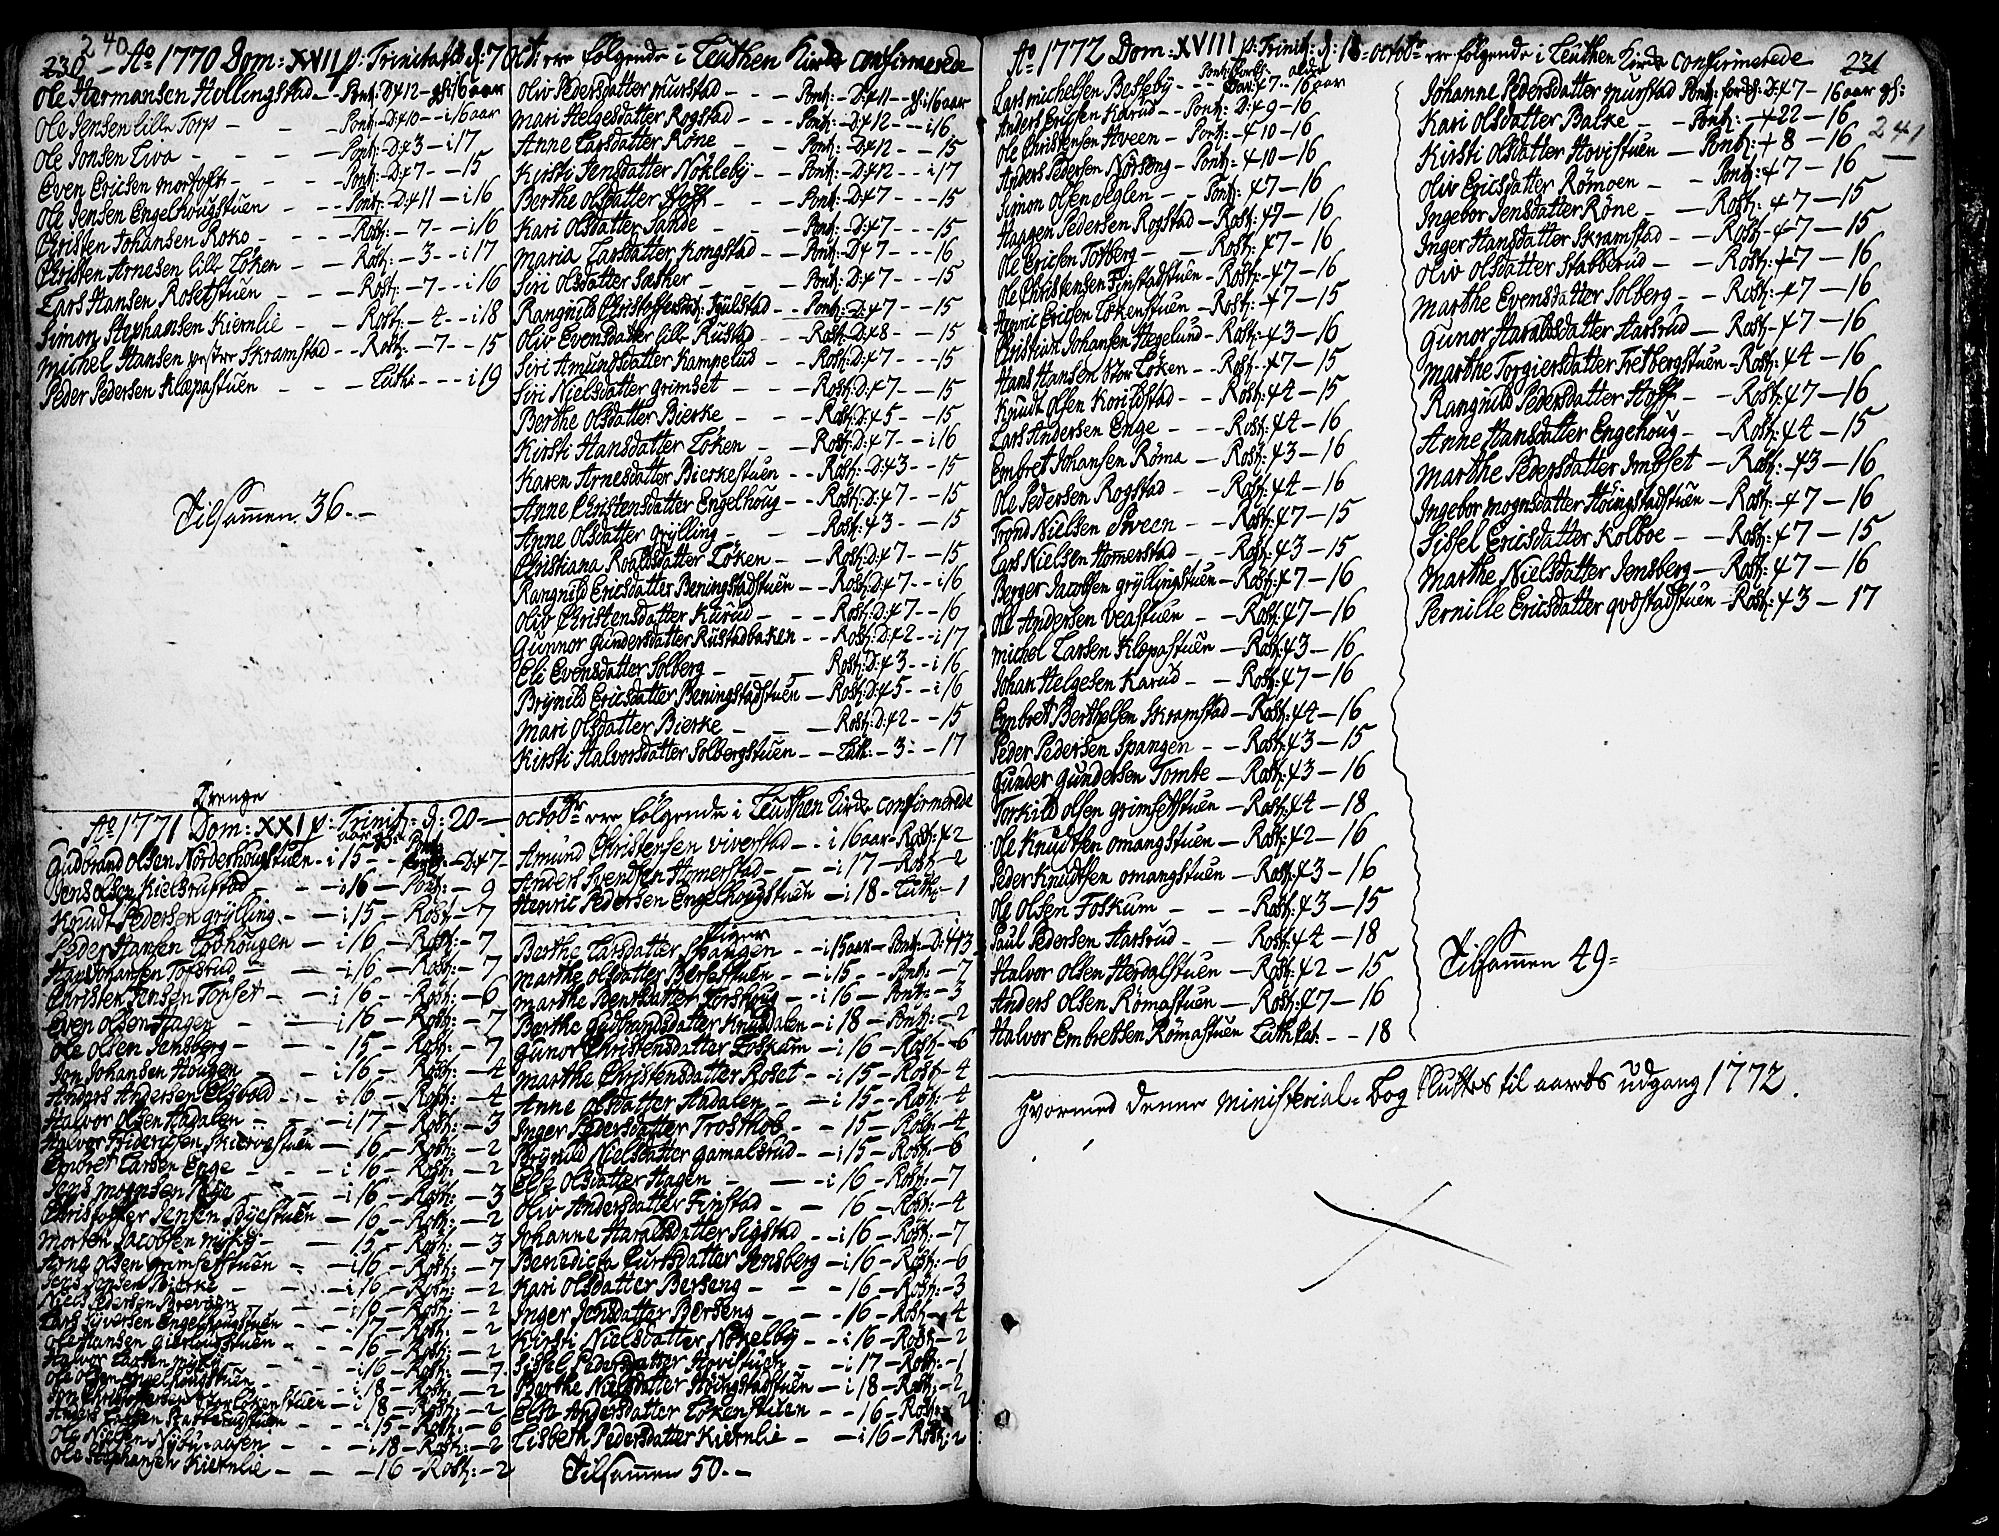 240
230 - Ao 1770 Dom: XVII p: Trinitatis d: 7 Oct: ere følgende i Leuthen Kirke confirmerede
Ole Hermansen Hollingstad - Pont: D 12 - gl: 16 aar
Ole Jensen lille Torp - - - Pont: D: 10 - - i 16 aar
Ole Jonsen Liva - - - - Pont: D: 3 - i 17
Even Ericsen Mortoft - - - Pont: D: 7 - - 15
Ole Jensen Engelhougstuen - - - Pont: D: 11 - i 16
Christen Johansen Roko - - - - Rosk: - 7 - - i 16
Christen Arnesen lille Løken - - Rosk: - 3 - - i 17
Lars Hansen Rosetstuen - - - Rosk: - 7 - - i 16
Simon Stephansen Kiernlie - - - Rosk: - 4 - - i 18
Michel Hansen vestre Skramstad - - Rosk: - 7 - - 15
Peder Pedersen Klæpastuen - - - Luth: - - - i 19
Tilsamen 36 - -
Oliv Pedersdatter Murstad - - - Pont: - D: 11 - gl: i 16 aar
Mari Helgesdatter Rogstad - - - Pont: - D: 12 - - i 16
Anne Larsdatter Røne - - - Pont: - D: 12 - - - 15
Kirsti Jensdatter Nøkleby - - Pont: - D: 12 - - i 17
Berthe Olsdatter Hoff - - - Pont: - D: 7 - - - 15
Kari Olsdatter Sande - - - Pont: - D: 7 - - - 15
Maria Larsdatter Kongstad - - - Pont: D 7 - - - 16
Siri Olsdatter Sæther - - - - Pont: D: 7 - - - 15
Rangnild Christoffersdat: Fjulstad - - Pont: D: 7 - - 15
Oliv Evensdatter lille Rustad - - Rosk: D: 8 - - 15
Siri Amundsdatter Kampelud - - Rosk: D: 7 - - - 15
Siri Nielsdatter Grimset - - - Rosk: D: 7 - - 15
Berthe Olsdatter Bierke - - - Rosk: D: 5 - - 15
Kirsti Hansdatter Løken - - Rosk: D: 7 - - i 16
Karen Arnesdatter Bierkestuen - - Rosk: D: 3 - - 15
Anne Christensdatter Engelhoug - - Rosk: D: 7 - - 15
Anne Olsdatter Grylling - - - Rosk: 3 - - 15
Christiana Roaldsdatter Løken - - Rosk: D: 7 - - 15
Rangnild Ericsdatter Beningstadstuen - - Rosk: D: 7 - - i 16
Oliv Christensdatter Kurud - - - Rosk: D: 7 - - 16
Gunnor Gundersdatter Rustadbaken - - Rosk: D: 2 - - i 17
Eli Evensdatter Solberg - - - Rosk: D: 3 - - i 16
Brynild Ericsdatter Beningstadstuen - Rosk: D: 5 - - i 16
Mari Olsdatter Bierke - - - Rosk: D: 2 - - 15
Kirsti Halvorsdatter Solbergstuen - - Luth: - 3: - - 17
Drenge
Ao 1771 Dom: XXI p: Trinit: d: 20 - octobr ere følgende i Leuthen Kirke confirmerede
Gudbrand Olsen Norderhougstuen - i 15 - - Pont: - D: 7 -
Jens Olsen Kielsrustad - - - i 16 - Pont: - 9
Knudt Pedersen Grylling - - i 15 - Rosk: - 7
Peder Hansen Lovhougen - i 16 - Rosk: - 7
Johansen Tofsrud - - - i 16 - Rosk: - 7
Christen Jensen Tønset - - - i 16 - - Rosk: - 6
Even Olsen Hagen - - - i 16 - Rosk: - 7
Ole Olsen Jensberg - - - 15 - Rosk: - 7
Jon Johansen Hougen - - i 16 - Rosk: - 4
Anders Andersen Elsbad - - i 16 - Rosk: - 4
Halvor Olsen Aadalen - - - i 17 - Rosk: - 3
Halvor Friderichsen Skiervestuen - 16 - Rosk: - 2
Embret Larsen Enge - - - i 16 - Rosk: - 2
Jens Mognsen - - - i 16 - Rosk: - 3
Christoffer Jensen Byestuen - 16 - Rosk: - 2
Morten Jacobsen Myhr - - - 15 - Rosk: - 3
Olsen Grimsetstuen - - i 16 - Rosk: - 7
Jens Jensen Bierke - - - i 16 - Rosk: - 2
Niels Pedersen - - - i 18 - Rosk: - 2
Lars Syversen Engelhougstuen - - - 17 - Rosk: - 2
Ole Hansen Gierlaugstuen - - - 16 - Rosk: - 2
Halvor Larsen Myhr - - - i 16 - Rosk: - 7
Ole Olsen Engelhougstuen - - i 18 - Rosk: - 2
Jon Christoffersen Stor Løkenstuen - i 18 - Rosk: - 2
Anders Larsen Stabberudstuen - - i 15 - Rosk: - 6
Ole Nielsen - - - i 18 - Rosk: - 2
Ole Stephansen Kiernlie - - - 16 - Rosk: - 2
Amund Christensen Viverstad - - i 16 aar - Rosk: 2
Anders Svendsen Homerstad - - - i 17 - Rosk - 2
Henric Pedersen Engelhougstuen - i 18 - Luth: - 1
Piger
Berthe Larsdatter Spangen - - i 15 aar - Pont: - D: 13
Marthe Olsdatter Bersetstuen - - i 15 - - Pont: - 7
Marthe Pensdatter Torshoug - - i 16 - Pont: - 3
Berthe Gudbrandsdatter Knusdalen - i 18 - Pont: - 2
Gunor Christensdatter Foskum - i 16 - Rosk - 6
Marthe Christensdatter Roset - i 15 - Rosk - 4
Anne Olsdatter Aadalen - - i 15 - Rosk - 4
Inger Pedersdatter Trosthob - - 15 - Rosk - 4
Brynild Nielsdatter Gamalsrud - - i 15 - Rosk - 6
Eli Olsdatter Hagen - - - i 16 - Rosk: - 7
Oliv Andersdatter Finstad - - 16 - Rosk - 4
Johanne Haraldsdatter Sigstad - - i 16 - Rosk: - 7
Benedicta Curtsdatter Jensberg - i 16 - Rosk: - 6
Kari Olsdatter Berseng - - - 16 - Rosk: - 3
Inger Jensdatter Berseng - - - 16 - Rosk - 4
Kirsti Nielsdatter Nøkelby - - i 16 - Rosk: - 2
Sissel Pedersdatter Hovistuen - - i 17 - Rosk: - 1
Berthe Nielsdatter Houngstadstuen - i 18 - Rosk: - 2
Elsa Andersdatter Løkenstuen - - 16 - Rosk: - 2
Lisbeth Pedersdatter Kiernlie - - i 16 - Rosk: 2
Tilsamen 50 - -
Ao 1772 Dom: XVIII p: Trinit: d: 18 - octobr ere følgende i Leuthen Kirke confirmerede 231
241
Lars Michelsen Besseby - - - Dav: 7 - 16 aar
Anders Ericsen Karud - - Pont: D: 9 - 16
Ole Christensen Hveen - Pont: - 10 - 16
Anders Pedersen Nørseng - Pont: - 10 - 16
Simon Olsen Eglen - - Pont: 7 - 16
Haagen Pedersen Rogstad - Rosk: 7 - 16
Ole Ericsen Torberg - - Rosk: 7 - 16
Ole Christensen Finstadstuen - Rosk: - 7 - 16
Henric Ericsen Løkenstuen - Rosk: - 7 - 15
Christian Johansen Hegelund - Rosk: - 3 - 16
Hans Hansen Stor Løken - - Rosk: - 7 - 15
Knudt Olsen Korildstad - - Rosk: 2 - 15
Lars Andersen Enge - - - Rosk: 4 - 16
Embret Johansen Røma - Rosk: 3 - 16
Ole Pedersen Rogstad - - Rosk: 4 - 16
Trond Nielsen Sveen - - Rosk: 7 - 15
Lars Nielsen Homerstad - - Rosk: 3 - 15
Berger Jacobsen Gryllingstuen - Rosk: 7 - 16
Ole Andersen Veastuen - - Rosk: 7 - 16
Michel Larsen Klæpastuen - Rosk: 3 - 16
Johan Helgesen Karud - - Rosk: 7 - 16
Embret Berthelsen Skramstad - Rosk: 4 - 16
Peder Pedersen Spangen - - Rosk: 3 - 15
Gunder Gundersen Tomte - Rosk: 3 - 16
Torkild Olsen Grimsetstuen - Rosk: 4 - 18
Ole Knudtsen Omangstuen - Rosk: 2 - 16
Peder Knudtsen Omangstuen - Rosk: 3 - 16
Ole Olsen Foskum - - - Rosk: 3 - 15
Paul Pedersen Aarsrud - - Rosk: 4 - 18
Halvor Olsen Herdalstuen - Rosk: 2 - 15
Anders Olsen Rømastuen - Rosk: 7 - 16
Halvor Embretsen Rømastuen Luth Cat: - - 18
Johanne Pedersdatter Murstad Pont: ford: D: 7 - 16 aar gl:
Kari Olsdatter Balke - - Pont: - 22 - 16
Kirsti Olsdatter Hovistuen - Pont: 8 - 16
Oliv Ericsdatter Rømoen - - Pont: 7 - 16
Ingebor Jensdatter Røne - - Rosk: 7 - 15
Inger Hansdatter Skramstad - - Rosk: 7 - 15
Oliv Olsdatter Stabberud - - Rosk: 7 - 16
Marthe Evensdatter Solberg - - Rosk: - 7 - 16
Gunor Haraldsdatter Aarsrud - Rosk - 7 - 16
Marthe Torgiersdatter Fretbergstuen - Rosk: 4 - 16
Rangnild Pedersdatter Hoff - - Rosk: 7 - 16
Anne Hansdatter Engehoug - - Rosk: 4 - 15
Marthe Pedersdatter Imbset - Rosk: - 3 - 16
Ingebor Mognsdatter Houngstadstuen - Rosk: - 7 - 16
Sissel Ericsdatter Kolboe - - Rosk: 7 - 15
Marthe Nielsdatter Jensberg - Rosk: 7 - 16
Pernille Ericsdatter Qvæstadstuen - Rosk: 3 - 17
Tilsamen 49 =
Hvormed denne Ministerial = Bog sluttes til aarets udgang 1772.